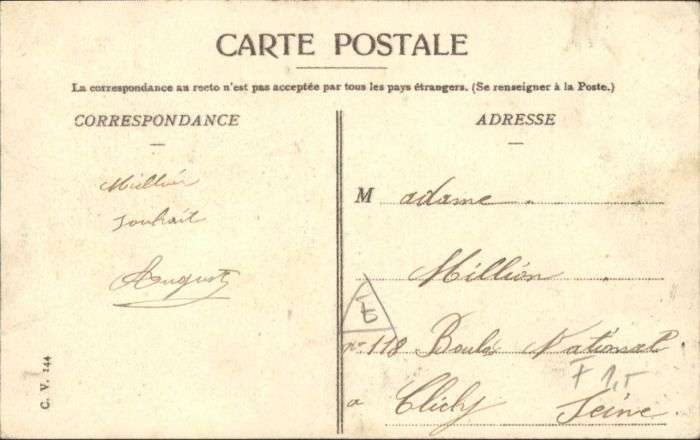 CARTE POSTALE
La correspondance au recto n'est pas acceptée par tous les pays étrangers. (Se renseigner à la Poste.)
CORRESPONDANCE
Souhait
August
C. V. 144
ADRESSE
M adame
Million
n° 118 Boulv National
a Clichy Seine